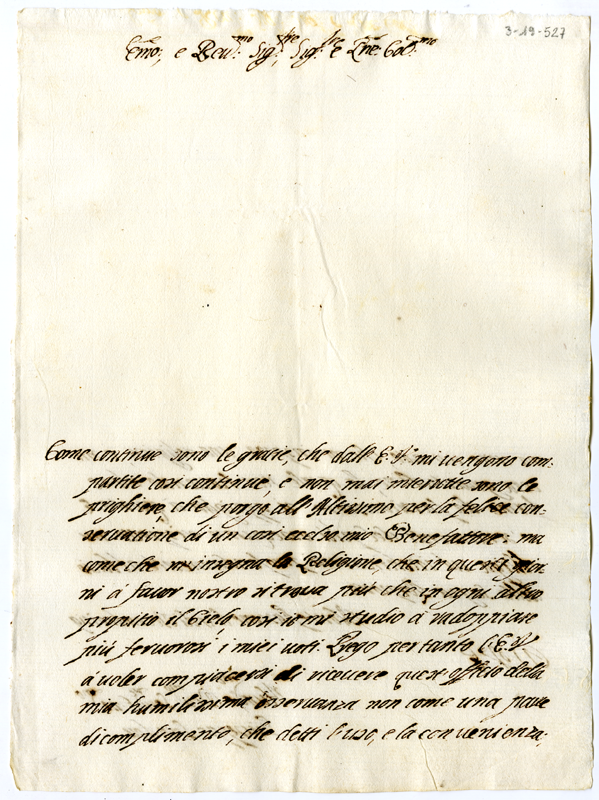 3-19-527
Em̃o, e Reu.mo Sig.re, Sig.re e Prñe Col.mo
Come continue sono le gratie, che dall' E.V. mi vengono com:
partite così continue, e non mai interrotte sono le
prighiere, che porgo all' Altissimo per la felice con:
servatione di un così eccelso mio Benefattore: ma
come che m' insegna la Religione, che in questi gior:
ni à favor nostro si trova più che in ogni altro
propitio il Cielo così io mi studio à radoppiare
più fervorosi i miei voti. Prego per tanto l' E.V.
à voler compiacersi di ricevere quest' officio della
mia humilissima osservanza non come una parte
di complimento, che detti l' uso, e la convenienza;